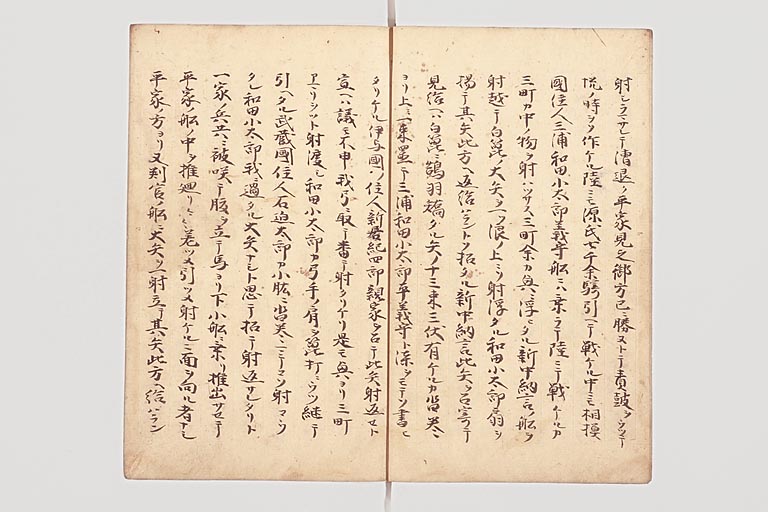 射シラマサレテ漕退ク平家見之御方已ニ勝ヌトテ責鼓ヲウツテ
悦ノ時ヲソ作ケル陸ニモ源氏七千余騎引ヘテ戦ケル中ニモ相摸
國住人三浦和田小太郎義守船ニハ乗ラテ陸ニテ戦ケルカ
三町カ中ノ物ヲ射ハツサス三町余カ奥ニ浮ヘタル新中納言ノ船ヲ
射越テ白箆ノ大矢ヲ一ツ浪ノ上ニソ射浮タル和田小太郎扇ヲ
揚テ其矢此方ヘ返給ハラントソ招タル新中納言此矢ヲ召寄テ
見給ヘハ白箆ニ鵠羽矯タル矢ノ十三束三伏有ケルカ沓巻
ヨリ上ニ一束置テ三浦和田小太郎平義守ト漆ニテソ書
タリケル伊与國ノ住人新居紀四郎親家ヲ召テ此矢射返セト
宣ヘハ議モ不申我弓ニ取テ番テ射タリケリ是モ奥ヨリ三町
ヲツト射渡シ和田小太郎カ弓手ノ肩ヲ箆打ニウツ継テ
引ヘタル武蔵國住人石迫太郎カ小肱ニ沓巻ニコソ射
タレ和田小太郎我ニ過タル大矢ナシト思テ招テ射返サレタリト
一家ノ兵共ニ被咲テ腹ヲ立テ馬ヨリ下小船ニ乗リ推出サセテ
平家ノ船ノ中ヲ推廻リ差ツメ引ツメ射ケルニ面ヲ向ル者ナシ
平家ノ方ヨリ又判官ノ船ニ大矢ヲ一射立テ其矢此方ヘ給ハラン